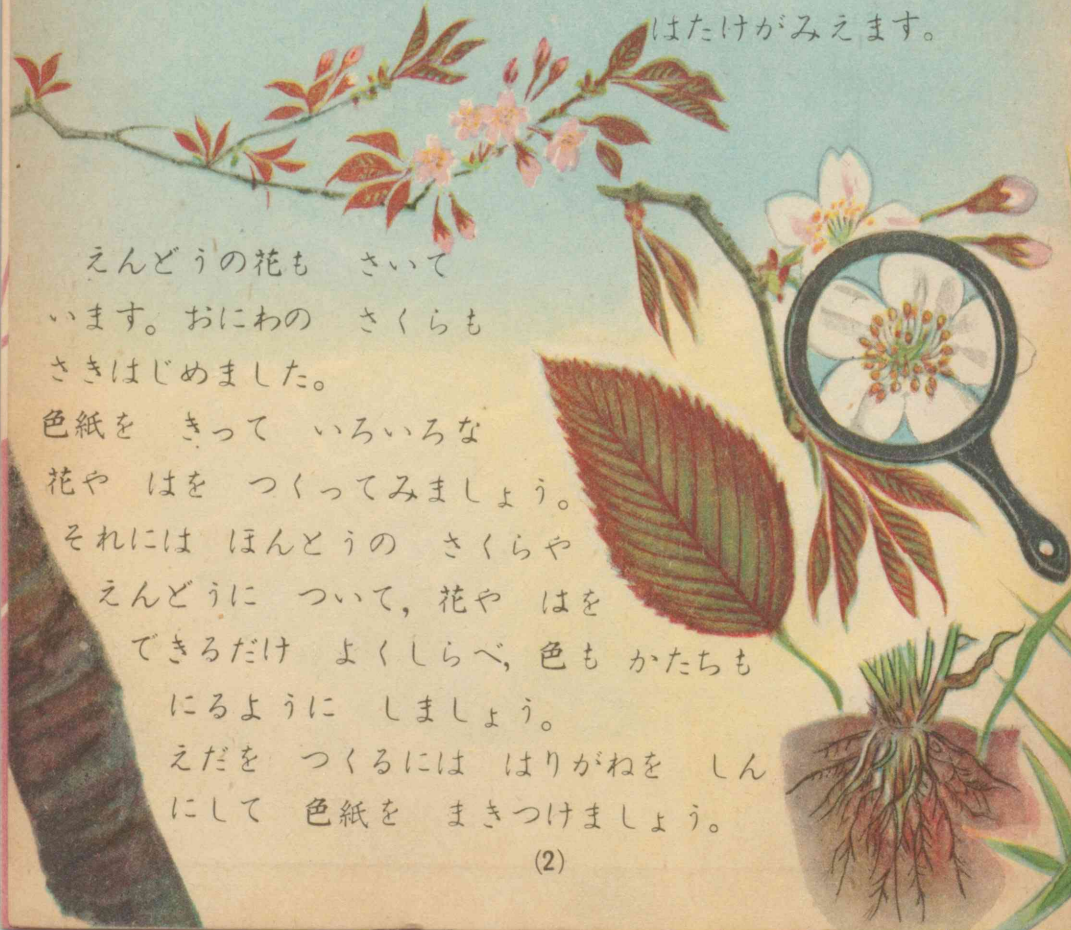 はたけがみえます。
えんどうの花も　さいて
います。おにわの　さくらも
さきはじめました。
色紙を　きって　いろいろな
花や　はを　つくってみましょう。
それには　ほんとうの　さくらや
えんどうに　ついて,　花や　はを
できるだけ　よくしらべ,　色も　かたちも
にるように　しましょう。
えだを　つくるには　はりがねを　しん
にして　色紙を　まきつけましょう。
(2)